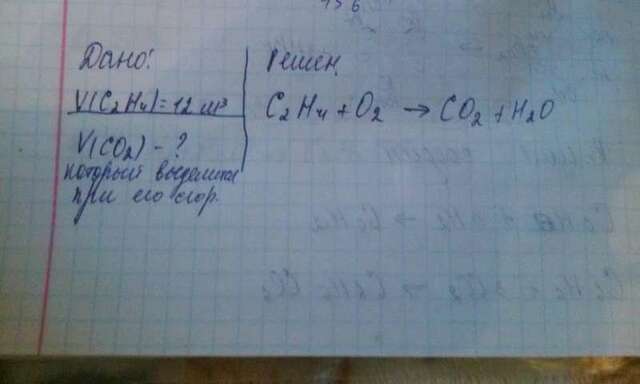 Дано:
V(C₂H₄) = 12 м³
V(CO₂) - ?
который выделится
при его сгор.
Решен.
C₂H₄ + O₂ → CO₂ + H₂O